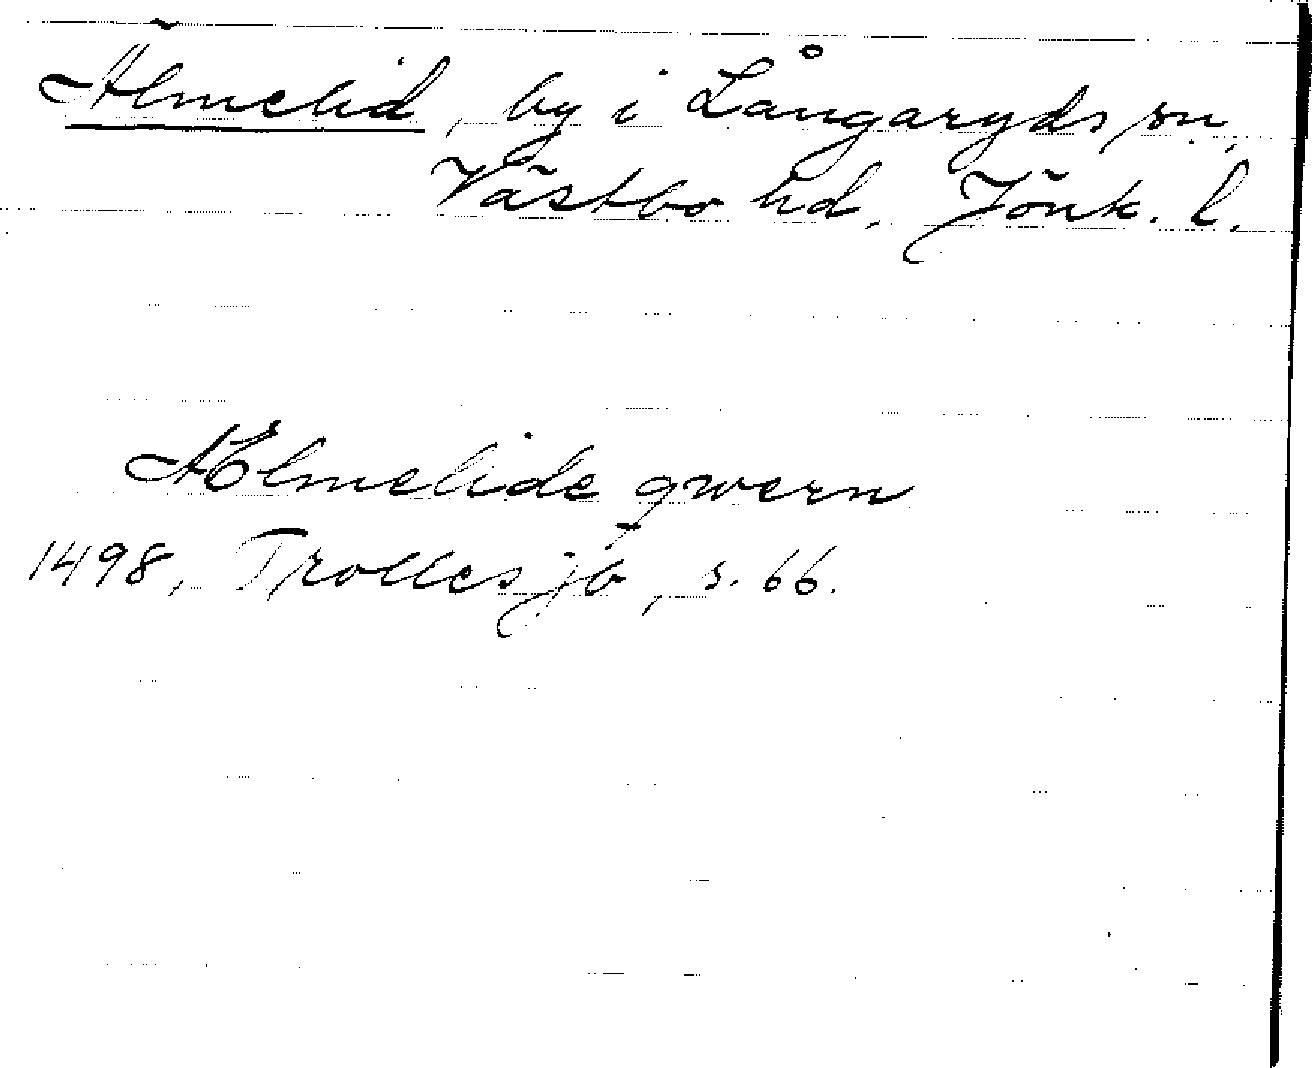 Älmelid, by i Långaryds sn,
Västbo hd, Jönk. l.
AElmelide qwern
1498, Trolles jb, s. 66.